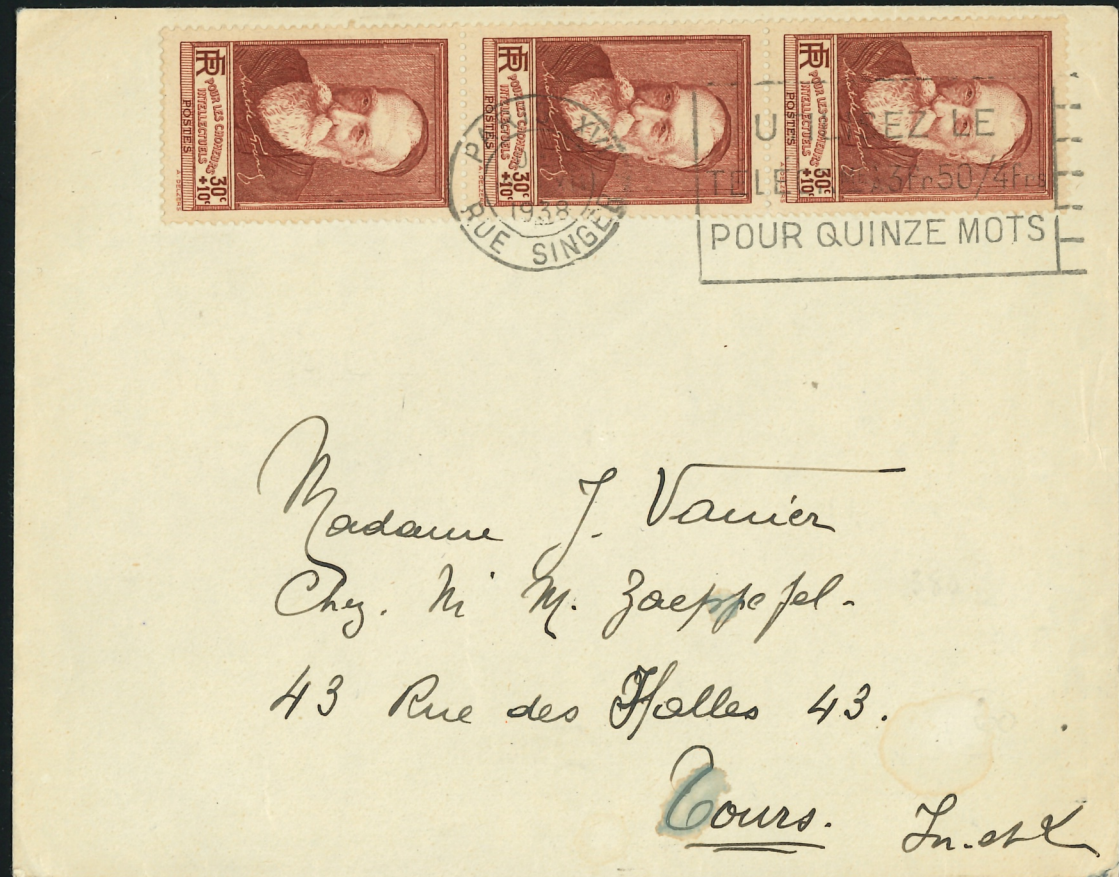 RF POUR LES CHOMEURS INTELLECTUELS POSTES 30c +10c
RF POUR LES CHOMEURS INTELLECTUELS POSTES 30c +10c
RF POUR LES CHOMEURS INTELLECTUELS POSTES 30c +10c
XVI
1938
RUE SINGER
LE
3Frs50/4Frs
POUR QUINZE MOTS
Madame J. Vanier
Chez. M. Zaeppefel-
43 Rue des Halles 43.
Tours. In.et L